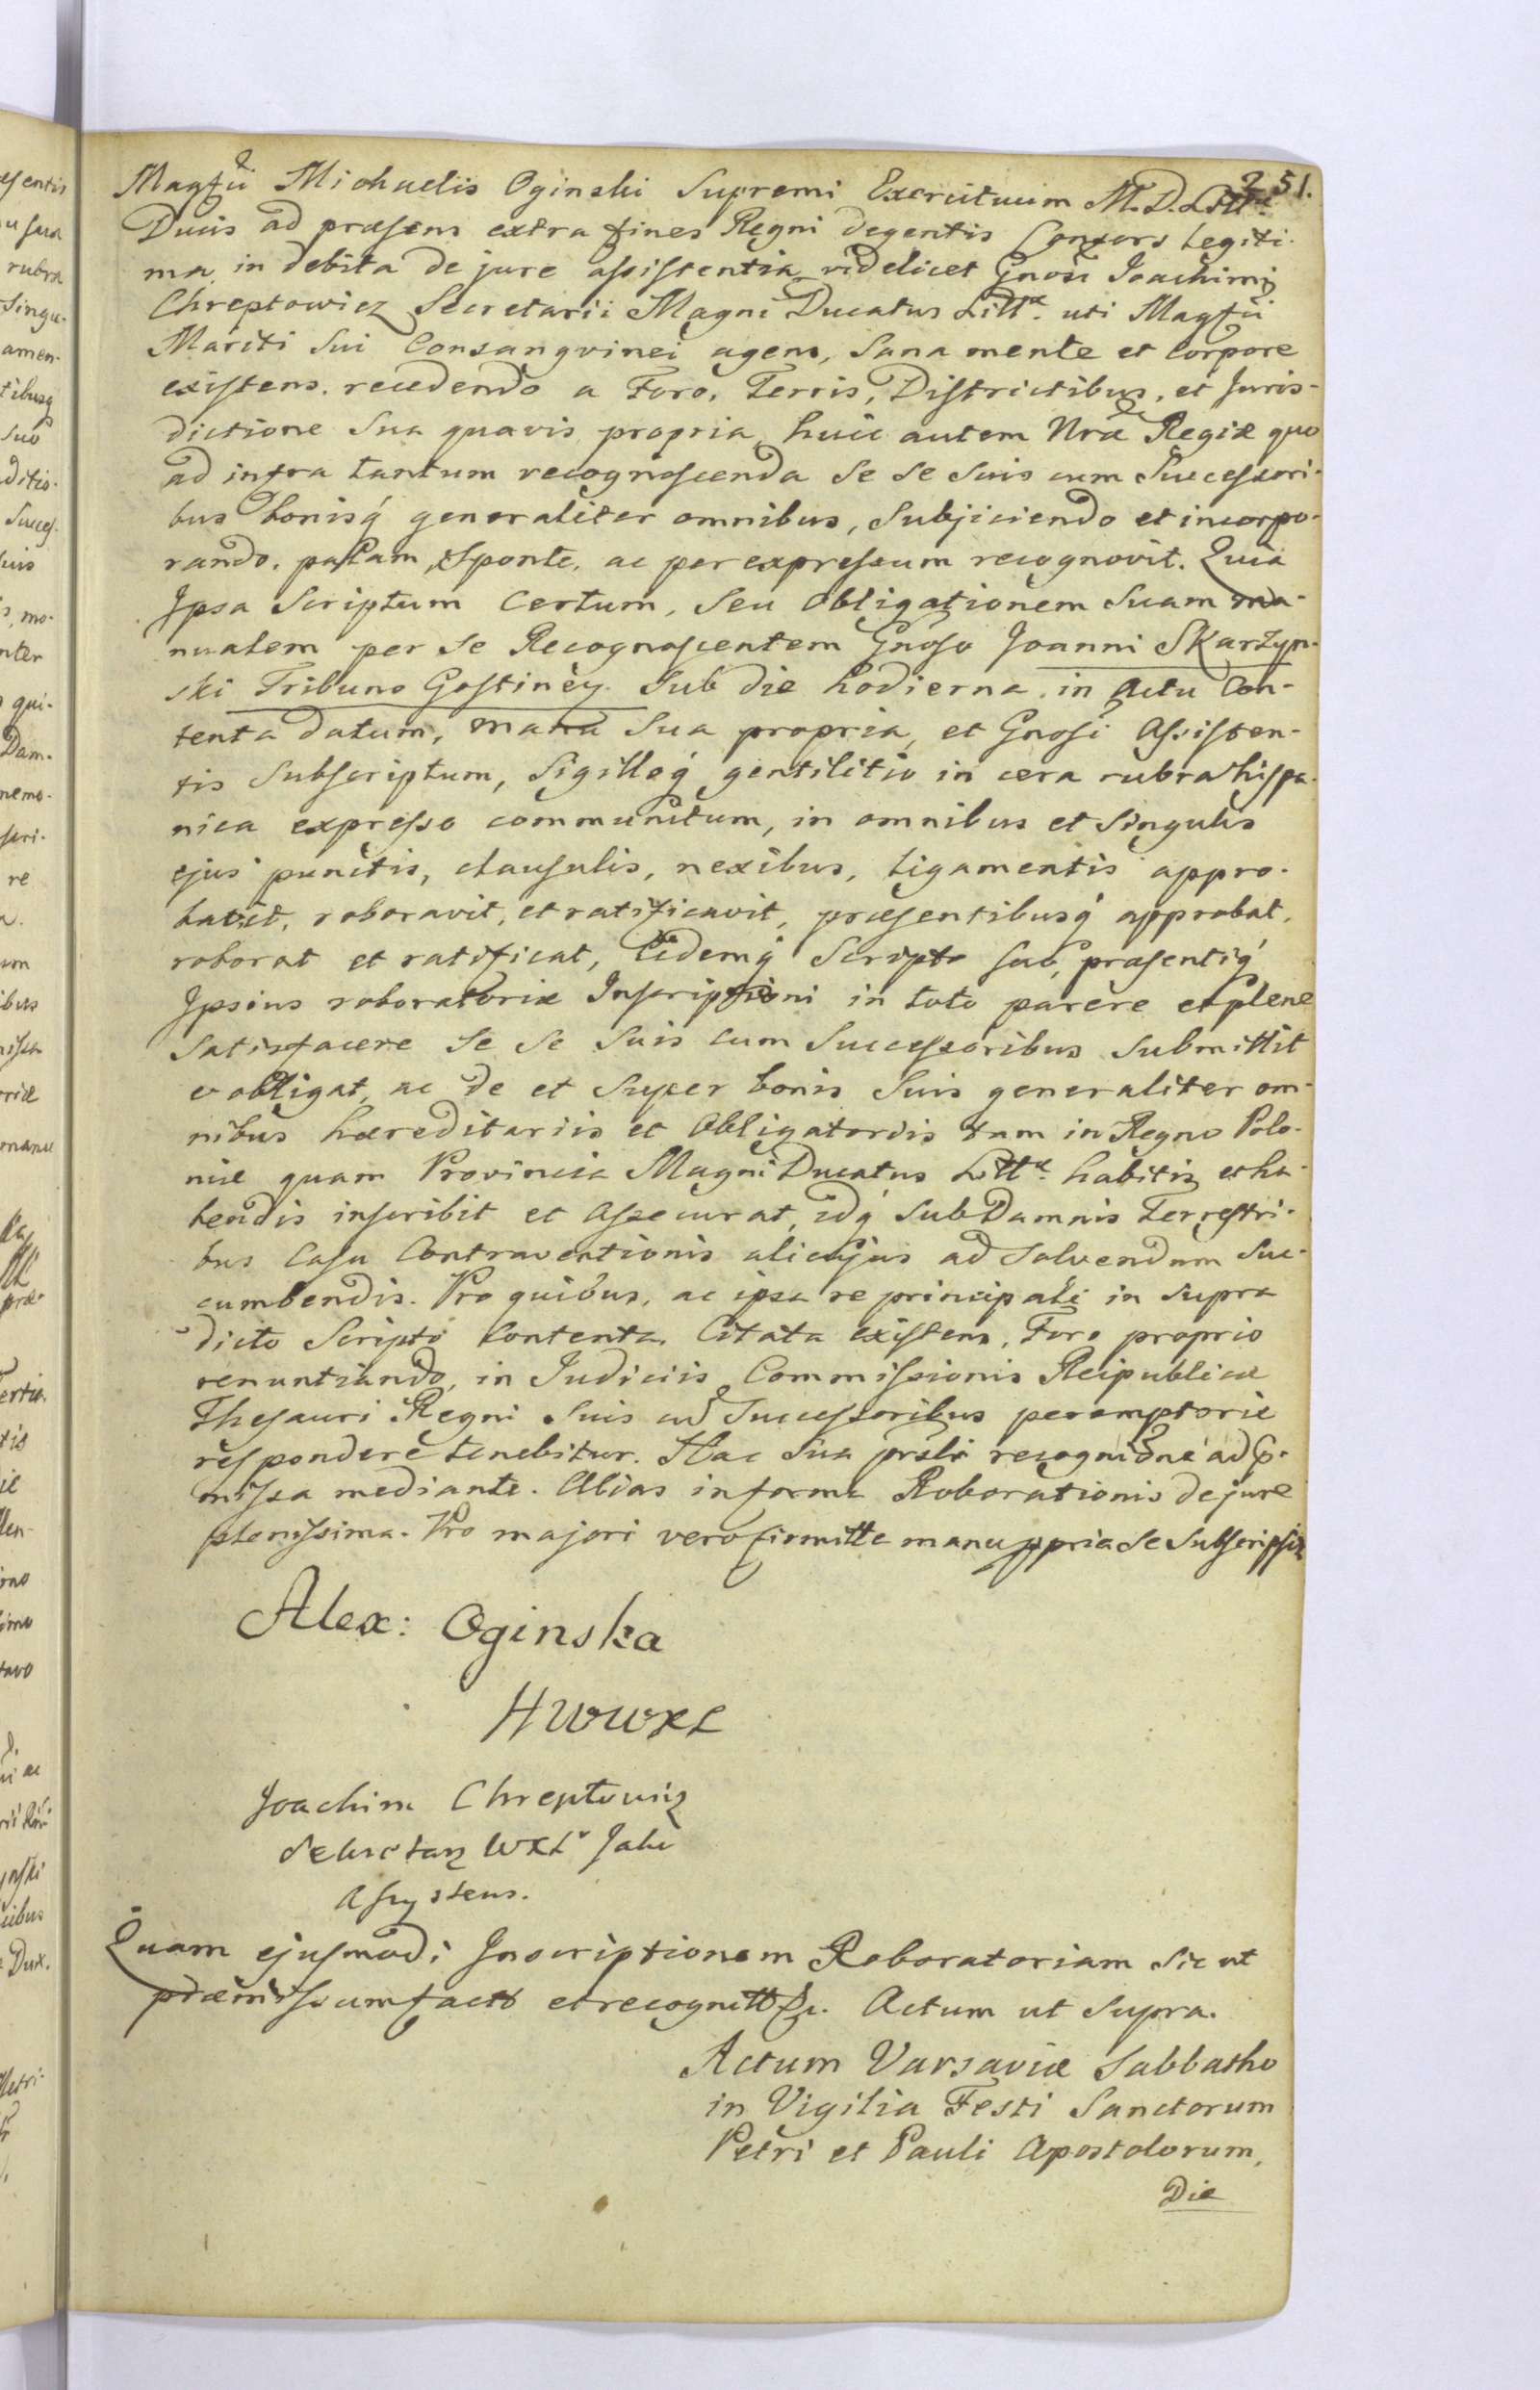 251.
Magfci Michaelis Oginski Supremi Exercituum M. D. Littæ
Ducis ad præsens extra fines Regni degentis Consors Legiti-
ma, in debita de jure assistentia videlicet Gnosi Joachimi
Chreptowicz Secretarii Magni Ducatus Littæ. uti Magfci
Mariti Sui Consangvinei agens, Sana mente et Corpore
existens. recedendo a Foro, Terris, Districtibus, et Juris-
dictione Sua quavis propria, huic autem Nræ Regiæ quo
ad infra tantum recognoscenda Se Se Suis cum Successori-
bus bonisq́ generaliter omnibus, Subjiciendo et incorpo-
rando. palam, Sponte, ac per expressum recognovit. Quia
Ipsa Scriptum Certum, Seu Obligationem Suam ma-
nualem per Se Recognoscentem Gnoso Joanni Skarzyn-
ski Tribuno Gostinen. Sub die hodierna in Actu Con-
tenta datum, manu Sua propria, et Gnosi Assisten-
tis Subscriptum, Sigilloq́ gentilitio in cera rubra hispa-
nica expresso communitum, in omnibus et Singulis
ejus punctis, clausulis, nexibus, ligamentis appro-
bavit, roboravit, et ratificavit, præsentibusq́ approbat,
roborat et ratificat, Eidemq́ Scripto Suo, præsentiq́
Ipsius roboratoriæ Inscriptioni in toto parere et plene
Satisfacere Se Se Suis cum Successoribus Submittit
et obligat, ac de et Super bonis Suis generaliter om-
nibus hæreditariis et Obligatoriis tam in Regno Polo-
niæ quam Provincia Magni Ducatus Littæ. habitis et ha-
bendis inscribit et Assecurat, idq́ Sub Damnis Terrestri-
bus Casu Contraventionis alicujus ad Solvendum Suc-
cumbendis. Pro quibus, ac ipsa re principali in Supra
dicto Scripto Contenta Citata existens, Foro proprio
renuntiando, in Judiciis Commissionis Reipublicæ
Thesauri Regni Suis cum Successoribus peremptorie
respondere tenebitur. Hac Sua præsti recognidne ad p-
missa mediante. Alias in forma Roborationis de jure
plenissima. Pro majori vero firmitte manu ppria Se Subscripsit
Alex: Oginska
HWWXL
Joachim Chreptowicz
Sekretarz WXL Jako
Assystens.
Quam ejusmodi Inscriptionem Roboratoriam Sic ut
præmissum facto et recognitto &c. Actum ut Supra.
Actum Varsaviæ Sabbatho
in Vigilia Festi Sanctorum
Petri et Pauli Apostolorum,
Die